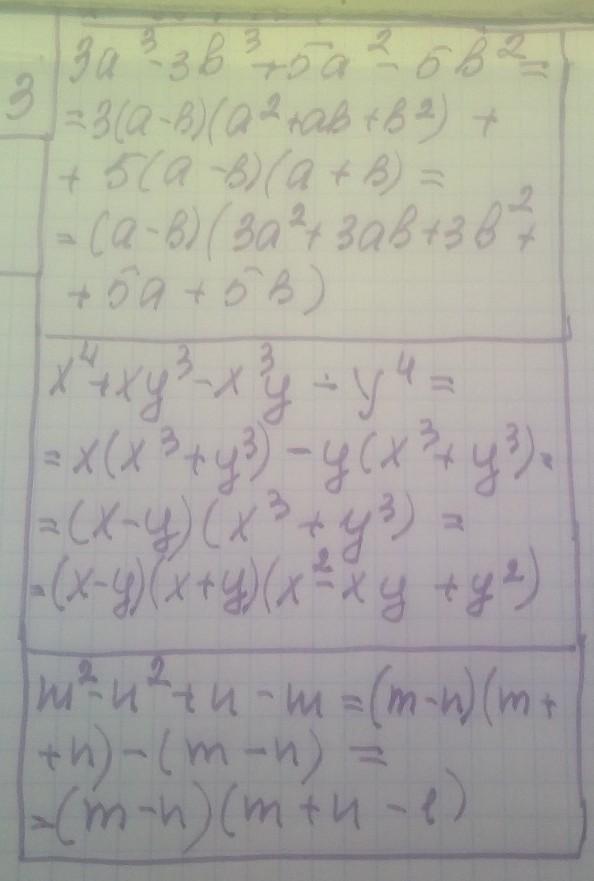 3
3a³-3b³+5a²-5b²=
=3(a-b)(a²+ab+b²)+
+5(a-b)(a+b)=
=(a-b)(3a²+3ab+3b²+
+5a+5b)
x⁴+xy³-x³y-y⁴=
=x(x³+y³)-y(x³+y³)=
=(x-y)(x³+y³)=
=(x-y)(x+y)(x²-xy+y²)
m²-n²+n-m=(m-n)(m+
+n)-(m-n)=
=(m-n)(m+n-1)